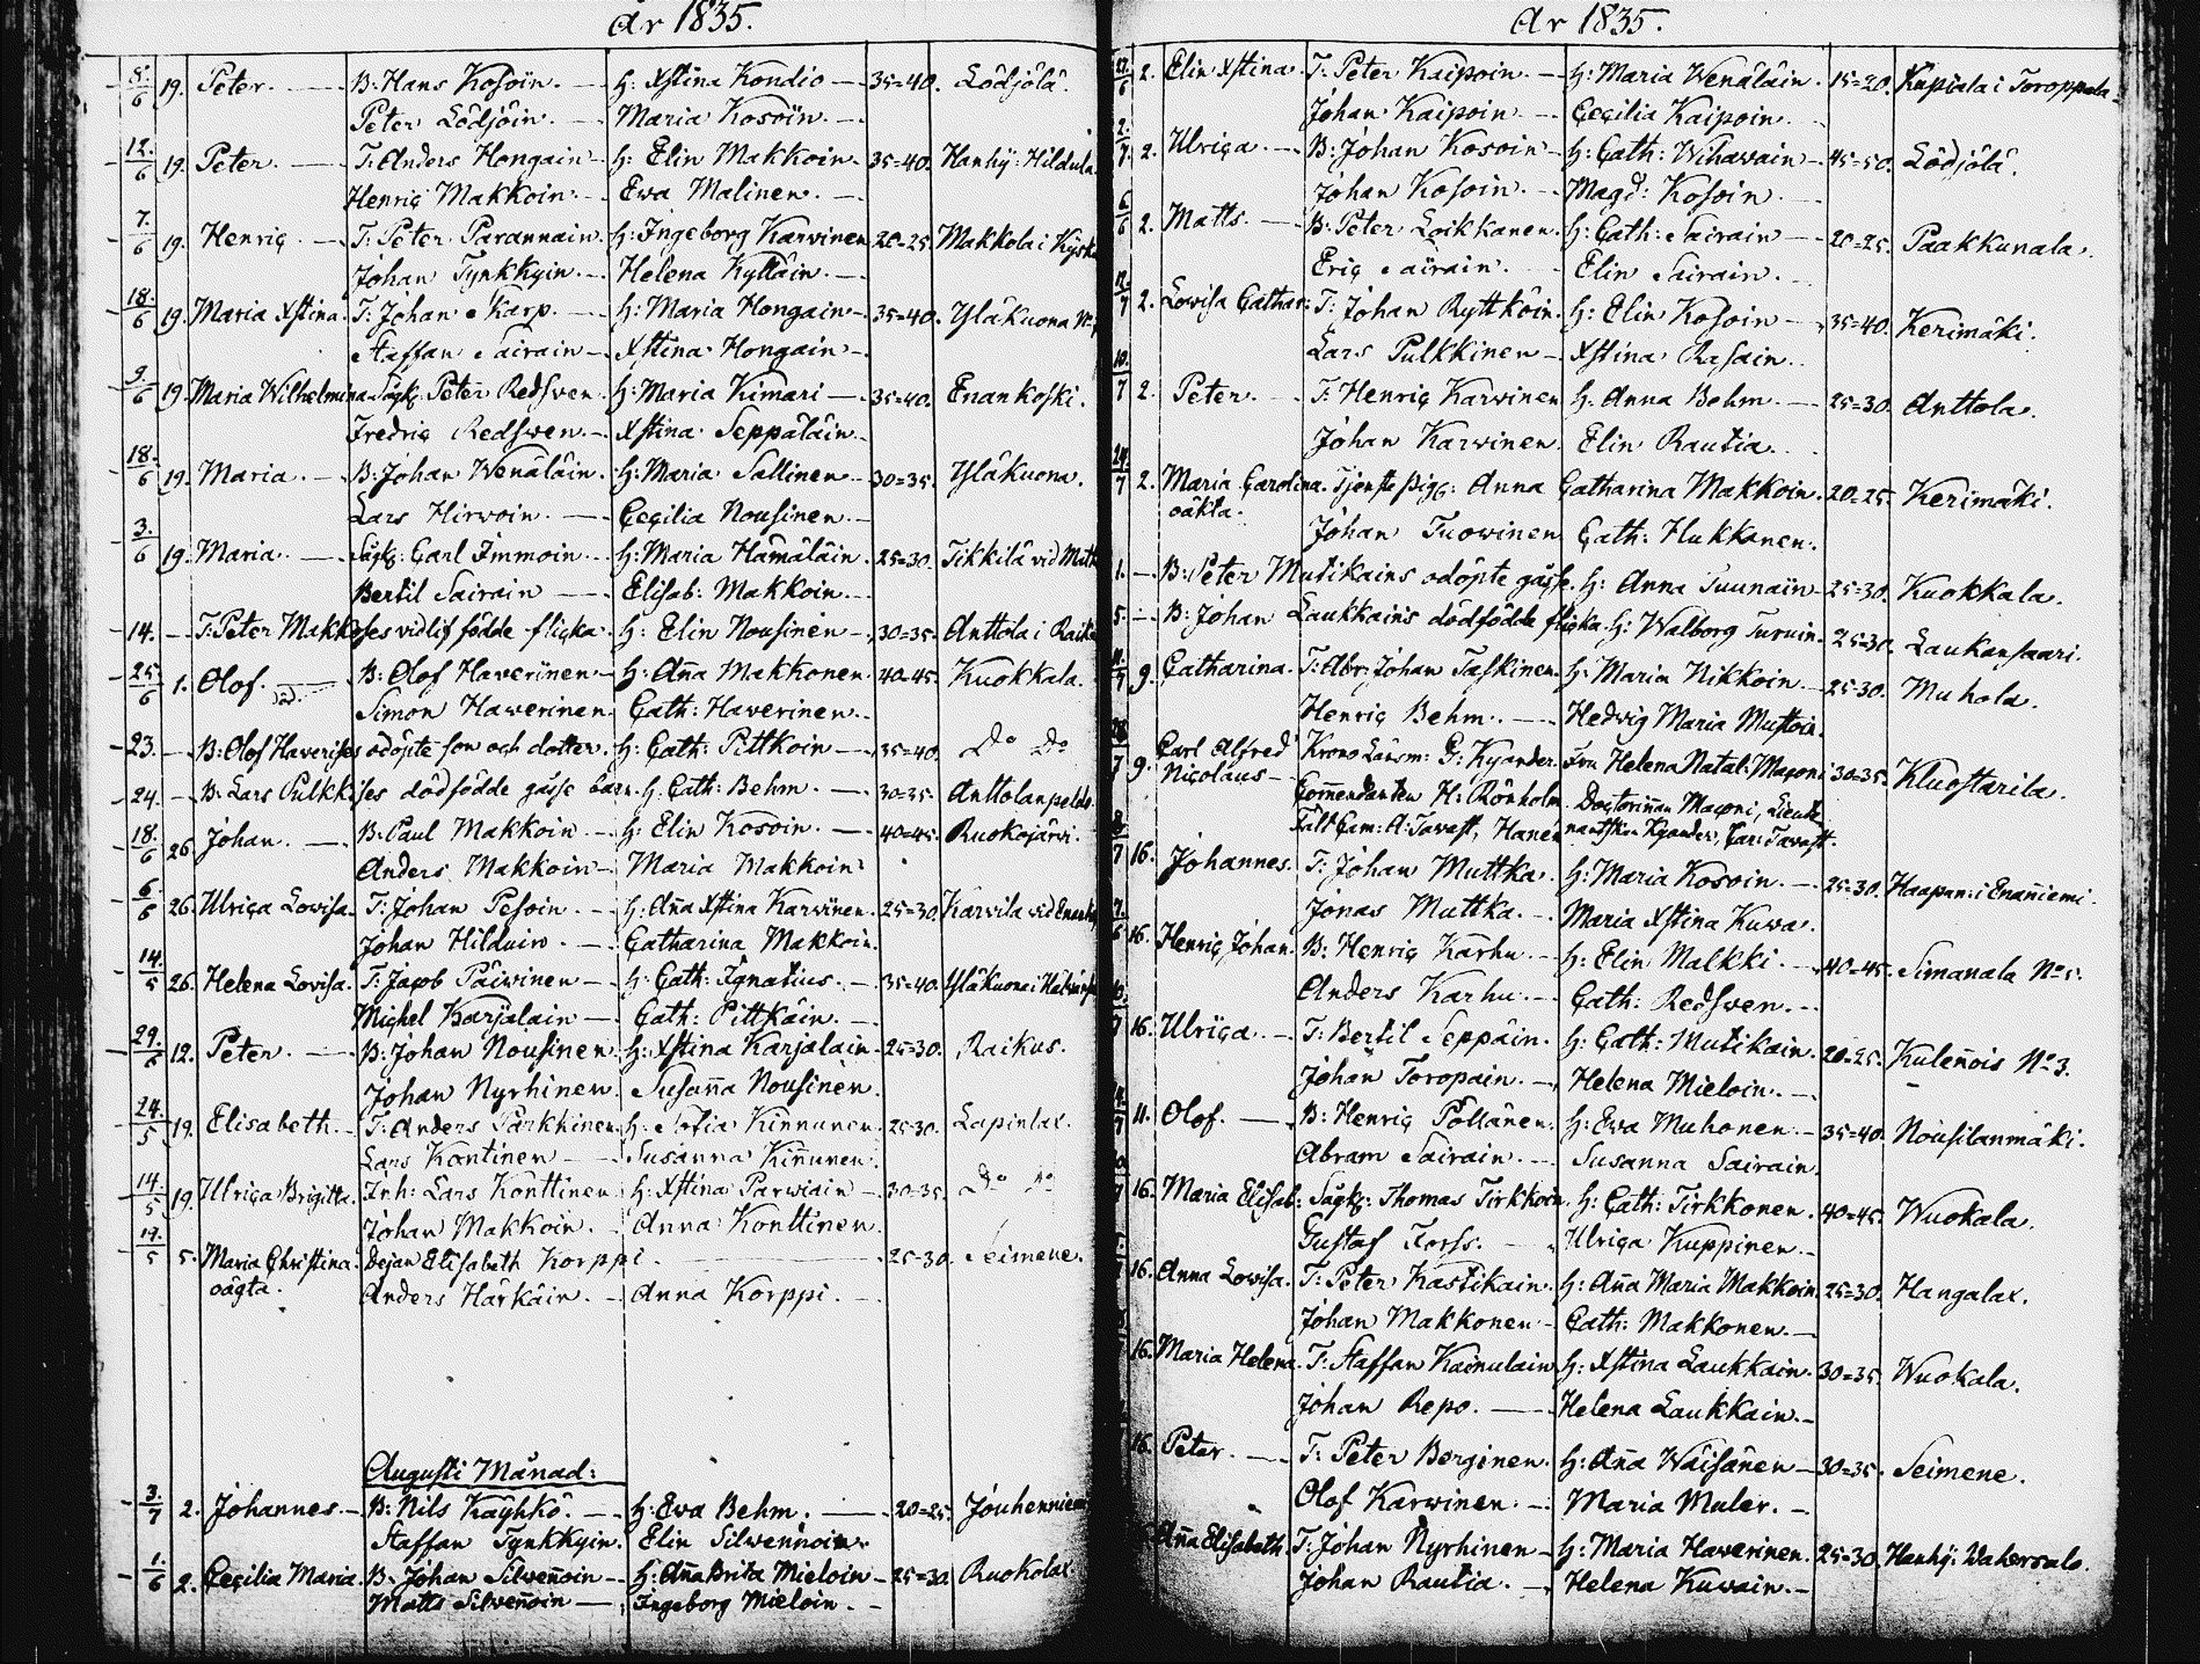 År 1835.
8./6 19. Peter. — B: Hans Kosoin. — H: Xstina Kondio — 35=40. Lödjölä.
Peter Lödjöin. — Maria Kosoin. —
12./6 19. Peter. — T: Anders Hongain — H: Elin Makkoin. 35=40. Hanhij: Hildula
Henric Makkoin. — Ewa Malinen. —
7./6 19. Henric. — T: Peter Parannain. H: Ingeborg Karvinen 20=25. Makkola i
Johan Tynkkyin. — Helena Kylläin. —
18./6 19. Maria Xstina. T: Johan Karp. — H: Maria Hongain — 35=40. Yläkuona
Staffan Sairain — Xstina Hongain —
9./6 19. Maria Wilhelmina Sågk: Peter Redswen. H: Maria Kimari — 35=40. Enankoski.
Fredric Redswen. — Xstina Seppäläin —
18./6 19. Maria. — B: Johan Wenäläin. H: Maria Sallinen — 30=35. Yläkuona.
Lars Hirwoin. — Cecilia Nousinen. —
3./6 19. Maria. — Sågk: Carl Immoin. — H: Maria Hämäläin. 25=30. Tikkilä vid
Bertil Sairain — Elisab: Makkoin. —
14. — T: Peter Makkoses vid lif födde flicka. H: Elin Nousinen — 30=35. Anttola i
25./6 1. Olof. — B: Olof Haverinen — H: Aña Makkonen. 40=45. Kuokkala.
Simon Hawerinen. Cath: Hawerinen. —
23. — B: Olof Haverises odöpte son och dotter. H: Cath: Pittkoin — 35=40. Do Do
24. — B: Lars Pulkkises dödfödde gåsse barn. H: Cath: Behm. — 30=35. Anttolanpelda
18./6 26. Johan. — B: Paul Makkoin — H: Elin Kosoin. — 40=45. Ruokojärvi.
Anders Makkoin — Maria Makkoin.
6./6 26. Ulrica Lovisa. T: Johan Pesoin. — H: Aña Xstina Karvinen. 25=30. Karvila vid
Johan Hilduin. — Catharina Makkoin.
14./5 26. Helena Lovisa. T: Jacob Päiwinen — H: Cath: Ignatius. — 35=40. Yläkuona i
Michel Karjalain — Cath: Pittkäin. —
29./6 12. Peter. — B: Johan Nousinen. H: Xstina Karjalain. 25=30. Raikus.
Johan Nyrhinen. Susaña Nousinen.
24./5 19. Elisabeth. — T: Anders Parkkinen. H: Sofia Kinnunen. 25=30. Lapinlax.
Lars Kontinen — Susanna Kiñunen.
14./5 19. Ulrica Brigitta. Inh: Lars Konttinen H: Xstina Parwiain — 30=35. Do Do
Johan Makkoin. — Anna Konttinen.
19./5 5. Maria Christina Dejan Elisabeth Korppi. — 25=30. Seimene.
oägta. Anders Härkäin. — Anna Korppi. —
Augusti Månad:
3./7 2. Johannes — B: Nils Käyhkö. — H: Ewa Behm. — 20=25. Jouhenniemi
Staffan Tynkkyin. Elin Silwennoin.
1./6 2. Cecilia Maria. B: Johan Silweñoin — H: Aña Brita Mieloin — 25=30. Ruokolax
Matts Silweñoin — Ingeborg Mieloin. —
År 1835.
27./6 2. Elin Xstina. T: Peter Kaipoin. — H: Maria Wenäläin. 15=20. Kupiala i Toroppala
Johan Kaipoin. — Cecilia Kaipoin.
2./7. 2. Ulrica. — B: Johan Kosoin — H: Cath: Wihawain — 45=50. Lödjölä.
Johan Kosoin. — Magd: Kosoin. —
6/6 2. Matts. — B: Peter Loikkanen. H: Cath: Sairain — 20=25. Paakkunala.
Eric Sairain. Elin Sairain.
12./7 2. Lowisa Cathar: T: Johan Ryttköin. H: Elin Kosoin — 35=40. Kerimäki.
Lars Pulkkinen — Xstina Rasain.
10./7 2. Peter. — T: Henric Karvinen H: Anna Behm. — 25=30. Anttola.
Johan Karvinen. Elin Rautia.
24./7 2. Maria Carolina. Tjenste pig: Anna Catharina Makkoin. 20=25. Kerimäki.
oäkta. Johan Tuowinen Cath: Hukkanen.
1. — B: Peter Mutikains odöpte gåsse. H: Anna Tuunain — 25=30. Kuokkala.
5. — B: Johan Laukkains dödfödde flicka. H: Walborg Turuin. 25=30. Laukansaari.
11./7 9. Catharina. T: Abr: Johan Taskinen. H: Maria Nikkoin. — 25=30. Muhola.
Henric Behm. — Hedvig Maria Mustoin.
28/7 9. Carl Alfred Nicolaus — Krono Länsm: G: Kyander. Fru Helena Natal: Maconi 30=35. Kluostarila.
Commendanten H: Rönholm. Doctoriñan Maconi, Lieute
Fält Cam: A: Tavast, nantskan Kyander, Car: Tavast.
8/7 16. Johannes. T: Johan Muttka. H: Maria Kosoin. — 25=30. Haapan: i Enañiemi.
Jonas Muttka. — Maria Xstina Kuwa.
7./6 16. Henric Johan. B: Henric Karhu. — H: Elin Malkki. — 40=45. Simanala No 5.
Anders Karhu. — Cath: Redswen. —
10./7 16. Ulrica. — T: Bertil Seppäin. H: Cath: Mutikain. 20=25. Kuleñois No 3.
Johan Toropain. — Helena Mieloin. —
4./7 11. Olof. — B: Henric Pöllänen. H: Ewa Muhonen — 35=40. Nousilanmäki.
Abram Sairain. — Susanna Sairain.
16. Maria Elisab: Sågk: Thomas Tirkkoin. H: Cath: Tirkkonen. 40=45. Wuokala.
Gustaf Forss. — Ulrica Kuppinen. —
16. Anna Lowisa. T: Peter Kastikain. H: Aña Maria Makkoin. 25=30. Hangalax.
Johan Makkonen — Cath: Makkonen. —
16. Maria Helena. T: Staffan Kainulain H: Xstina Laukkain. 30=35. Wuokala.
Johan Repo. — Helena Laukkain. —
16. Peter. — T: Peter Berginen. H: Aña Wäisänen — 30=35. Seimene.
Olof Karwinen. — Maria Muler. —
Aña Elisabeth. T: Johan Nyrhinen — H: Maria Haverinen. 25=30. Hanhij: Wahersalo.
Johan Rautia. — Helena Kuwain. —